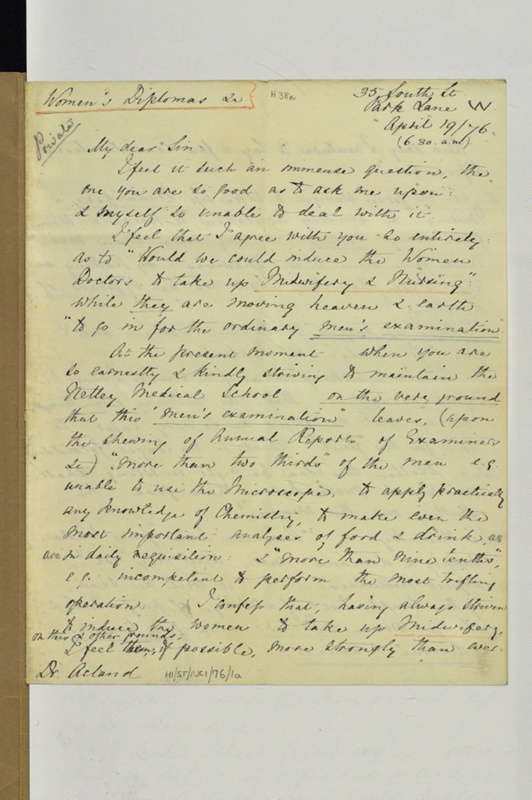 Women's Diplomas &c
H 38a
35 South St
Park Lane W
April 19/76
(6.30 a.m)
Private
My dear Sir
I feel it such an immense question, the
one you are so good as to ask me upon:
& myself so unable to deal with it
I feel that I agree with you so entirely
as to "Would we could induce the Women
Doctors to take up Midwifery & Nursing"
while they are moving heaven & earth
"to go in for the ordinary men's examination
At the present moment when you are
so earnestly & kindly striving to maintain the
Netley Medical School on the very ground
that this "men's examination" leaves, (upon
the shewing of Annual Reports of Examiners
&c) "more than two thirds" of the men e.g.
unable to use the Microscope, to apply practically
any knowledge of Chemistry, to make even the
most important analyses of food & drink, as
are in daily requisition: & "more than nine tenths",
e.g. incompetent to perform the most trifling
operation I confess that, having always striven
to induce the women to take up Midwifery,
on this & other grounds,
I feel, if possible, more strongly than ever
Dr. Acland
H1/ST/NC1/76/1a